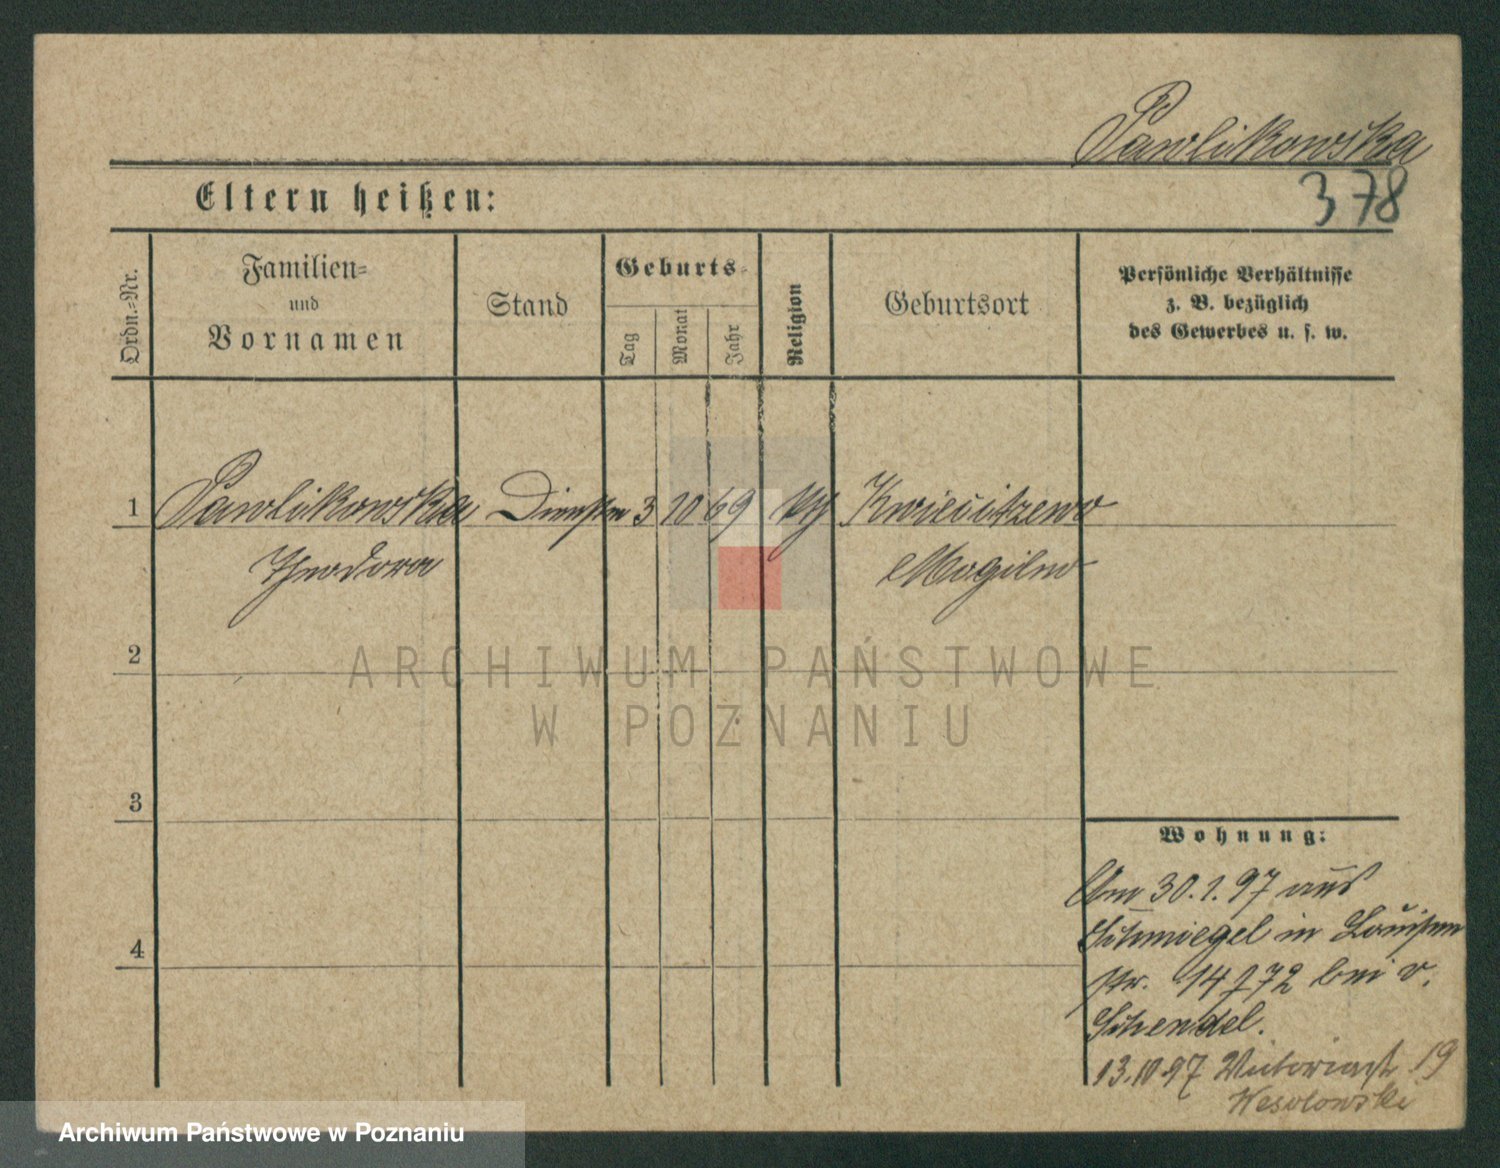 Pawlikowska
378
Eltern heißen:
Ordn.-Nr.
Familien-
und
Vornamen
Stand
Geburts-
Tag
Monat
Jahr
Religion
Geburtsort
Persönliche Verhältnisse
z. B. bezüglich
des Gewerbes u. s. w.
1 Pawlikowska 3 10 69 Kwiecitzewo
Theodora Mogilno
2
3
4
ARCHIWUM PAŃSTWOWE
W POZNANIU
Wohnung:
Am 30.1.97 aus
Schmiegel in Louisen
str. 14 bei v.
Schendel.
13.10.97 Victoriastr. 19
Wesolowski
Archiwum Państwowe w Poznaniu